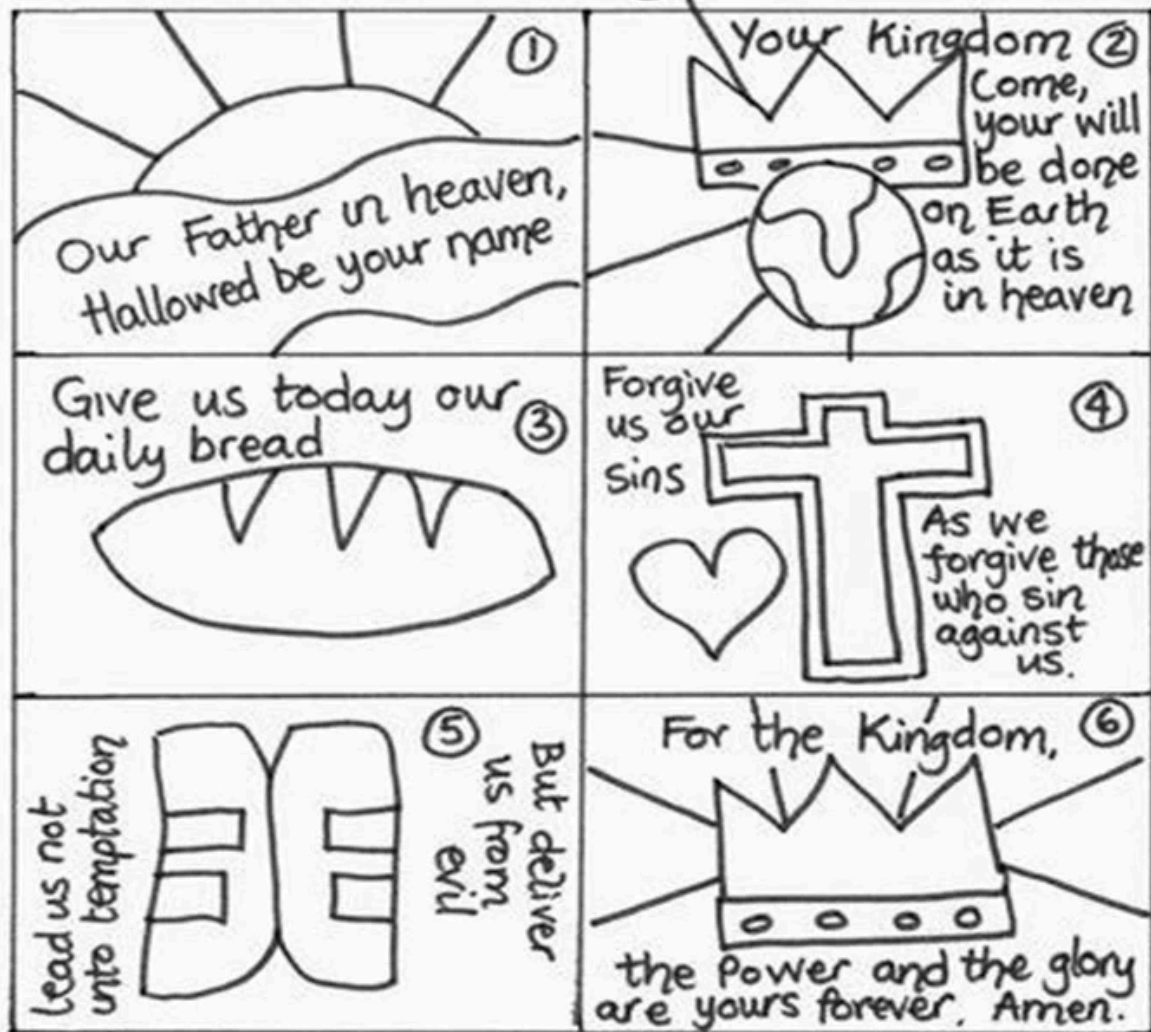 ①
Our Father in heaven,
Hallowed be your name
Your Kingdom ②
Come,
your will
be done
on Earth
as it is
in heaven
Give us today our
daily bread ③
Forgive
us our
sins
④
As we
forgive those
who sin
against
us.
⑤
lead us not
into temptation
But deliver
us from
evil
For the Kingdom, ⑥
the Power and the glory
are yours forever. Amen.